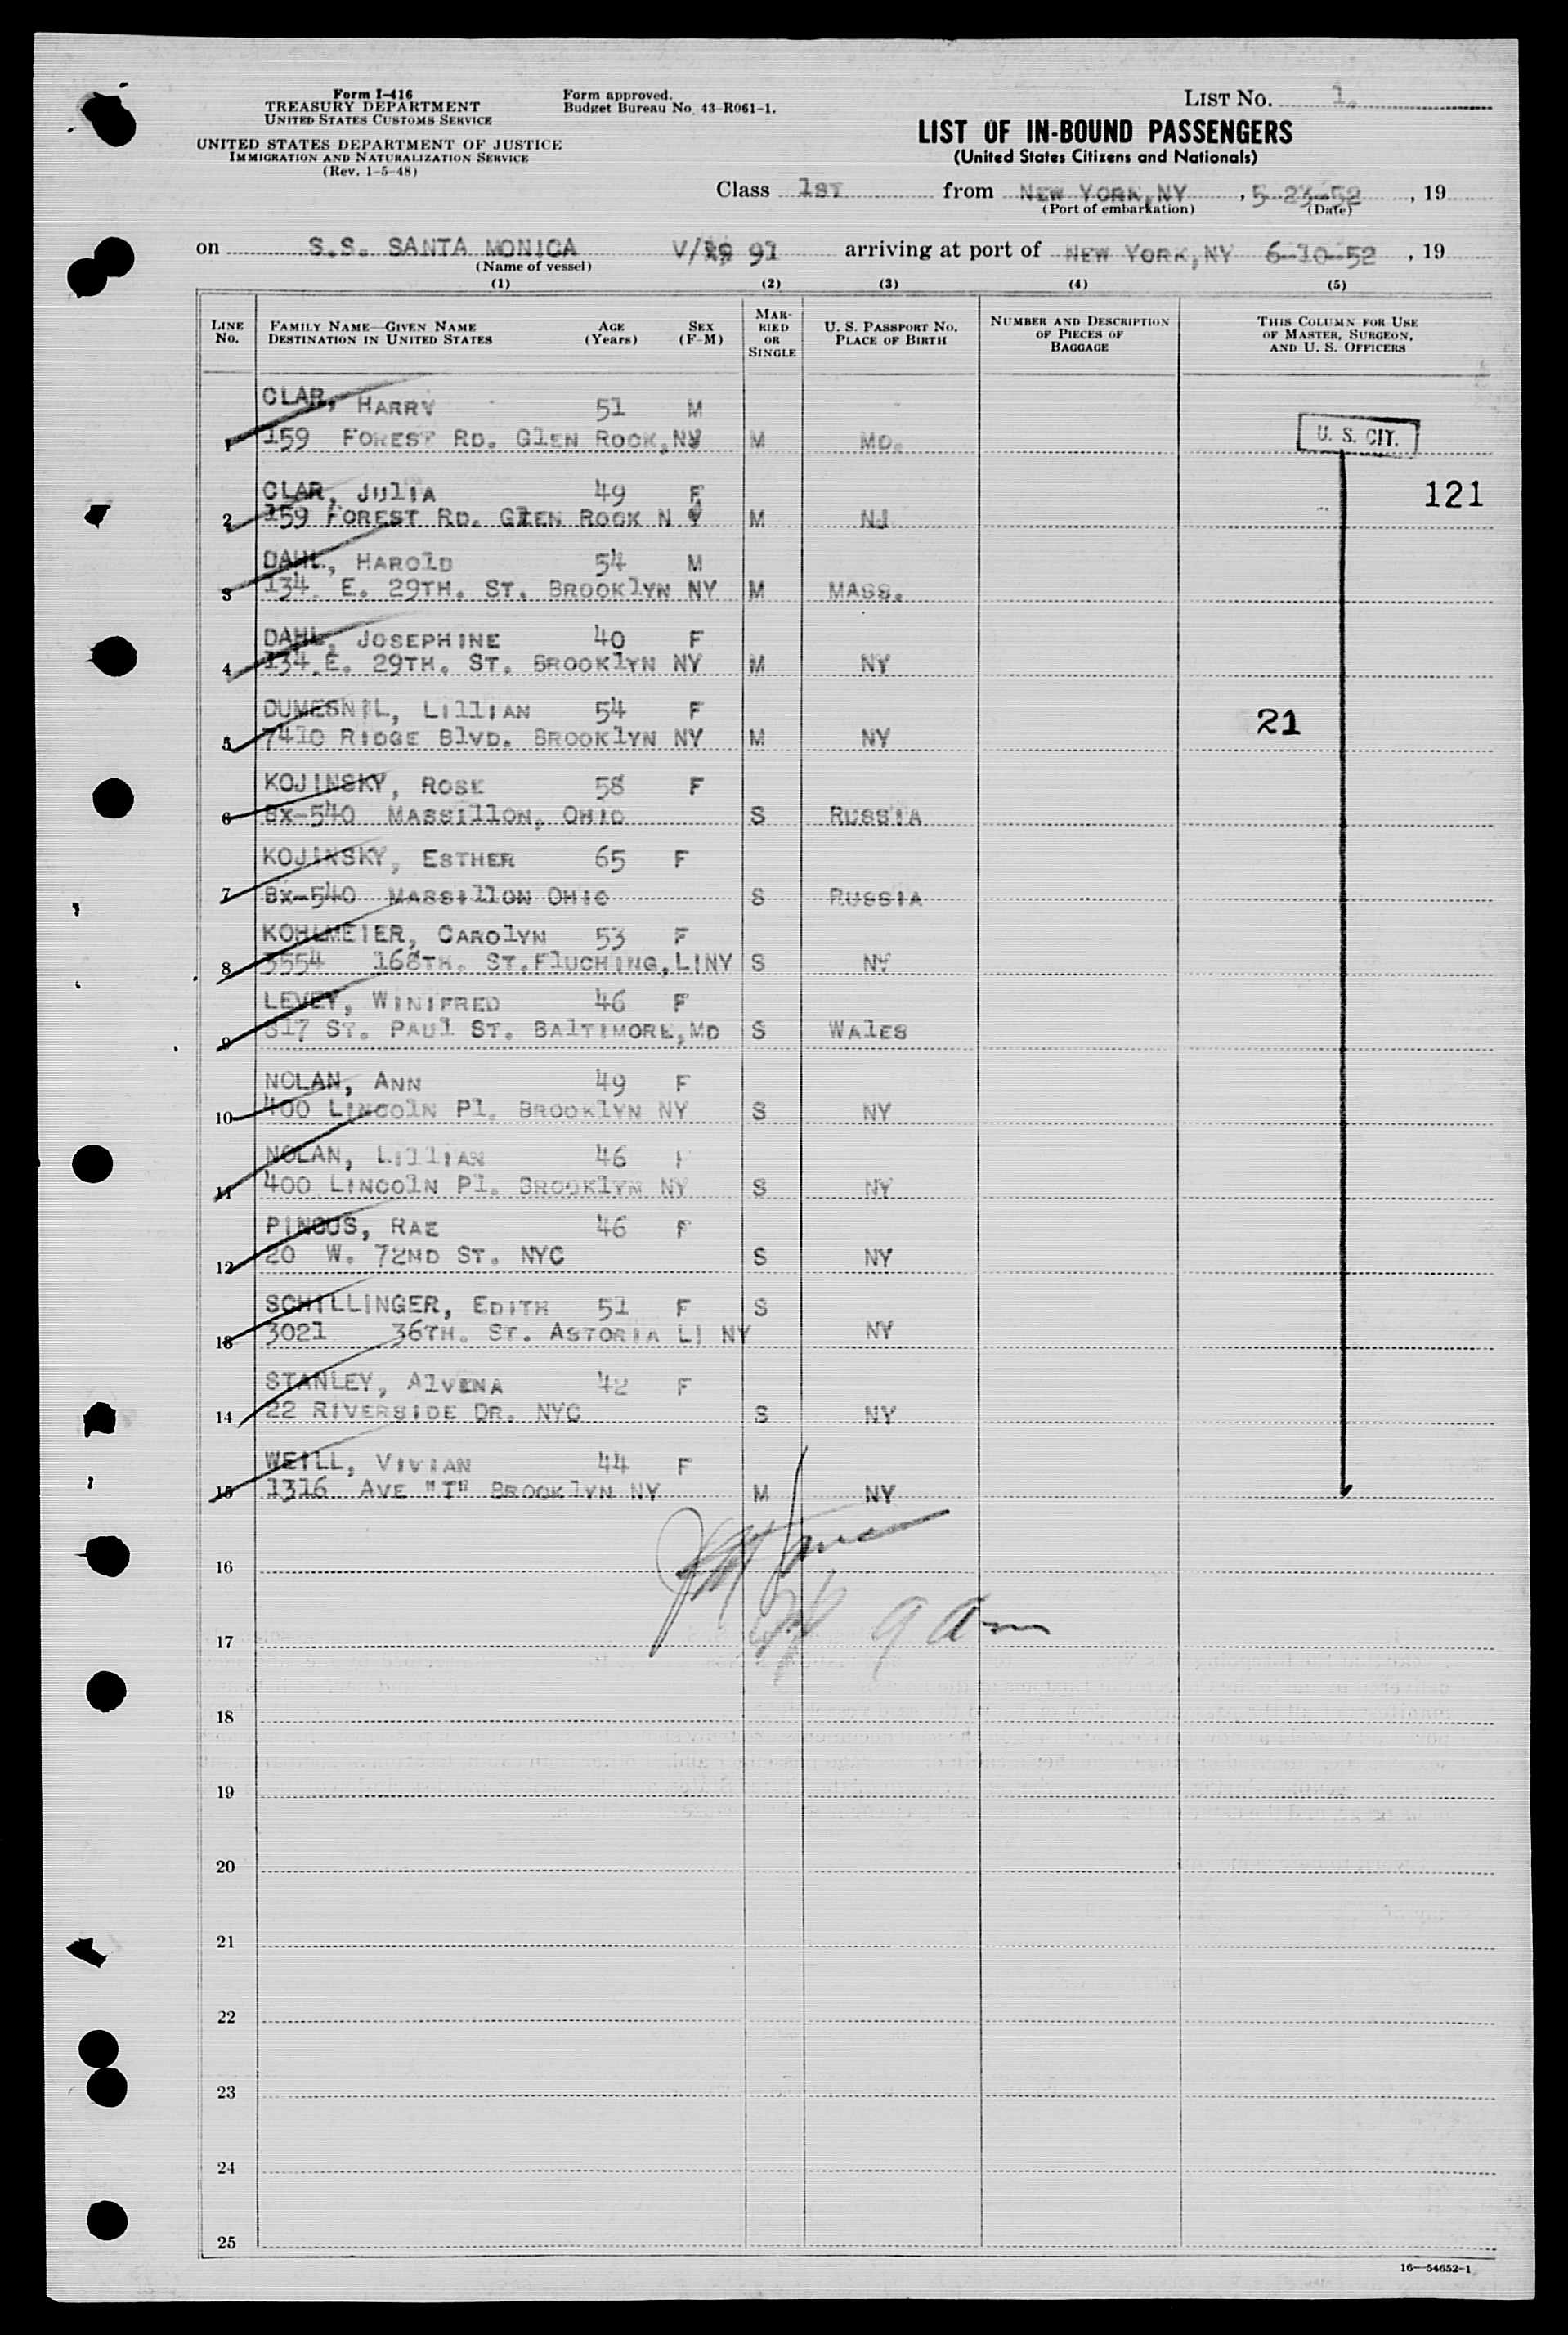 Form I-416
TREASURY DEPARTMENT
UNITED STATES CUSTOMS SERVICE
UNITED STATES DEPARTMENT OF JUSTICE
IMMIGRATION AND NATURALIZATION SERVICE
(Rev. 1-5-48)
Form approved.
Budget Bureau No. 43-R061-1.
LIST NO. 1.
LIST OF IN-BOUND PASSENGERS
(United States Citizens and Nationals)
Class 1ST from NEW YORK, NY , 5-23-52 , 19
(Port of embarkation) (Date)
on S.S. SANTA MONICA V/ 91 arriving at port of NEW YORK, NY 6-10-52 , 19
(Name of vessel)
(1) (2) (3) (4) (5)
LINE NO. FAMILY NAME—GIVEN NAME DESTINATION IN UNITED STATES AGE (Years) SEX (F-M) MARRIED OR SINGLE U. S. PASSPORT NO. PLACE OF BIRTH NUMBER AND DESCRIPTION OF PIECES OF BAGGAGE THIS COLUMN FOR USE OF MASTER, SURGEON, AND U. S. OFFICERS
CLAR, HARRY 51 M
1 159 FOREST RD. GLEN ROCK, NJ M MO. U. S. CIT.
CLAR, JULIA 49 F 121
2 159 FOREST RD. GLEN ROCK N J M NJ
DAHL, HAROLD 54 M
3 134 E. 29TH. ST. BROOKLYN NY M MASS.
DAHL, JOSEPHINE 40 F
4 134 E. 29TH. ST. BROOKLYN NY M NY
DUMESNIL, LILLIAN 54 F 21
5 7410 RIDGE BLVD. BROOKLYN NY M NY
KOJINSKY, ROSE 58 F
6 BX-540 MASSILLON, OHIO S RUSSIA
KOJINSKY, ESTHER 65 F
7 BX-540 MASSILLON OHIO S RUSSIA
KOHLMEIER, CAROLYN 53 F
8 3554 168TH. ST. FLUCHING, LINY S NY
LEVEY, WINIFRED 46 F
9 817 ST. PAUL ST. BALTIMORE, MD S WALES
NOLAN, ANN 49 F
10 400 LINCOLN PL. BROOKLYN NY S NY
NOLAN, LILLIAN 46 F
11 400 LINCOLN PL. BROOKLYN NY S NY
PINCUS, RAE 46 F
12 20 W. 72ND ST. NYC S NY
SCHILLINGER, EDITH 51 F S
13 3021 36TH. ST. ASTORIA LI NY NY
STANLEY, ALVENA 42 F
14 22 RIVERSIDE DR. NYC S NY
WEILL, VIVIAN 44 F
15 1316 AVE "T" BROOKLYN NY M NY
16
9 am
17
18
19
20
21
22
23
24
25
16—54652-1